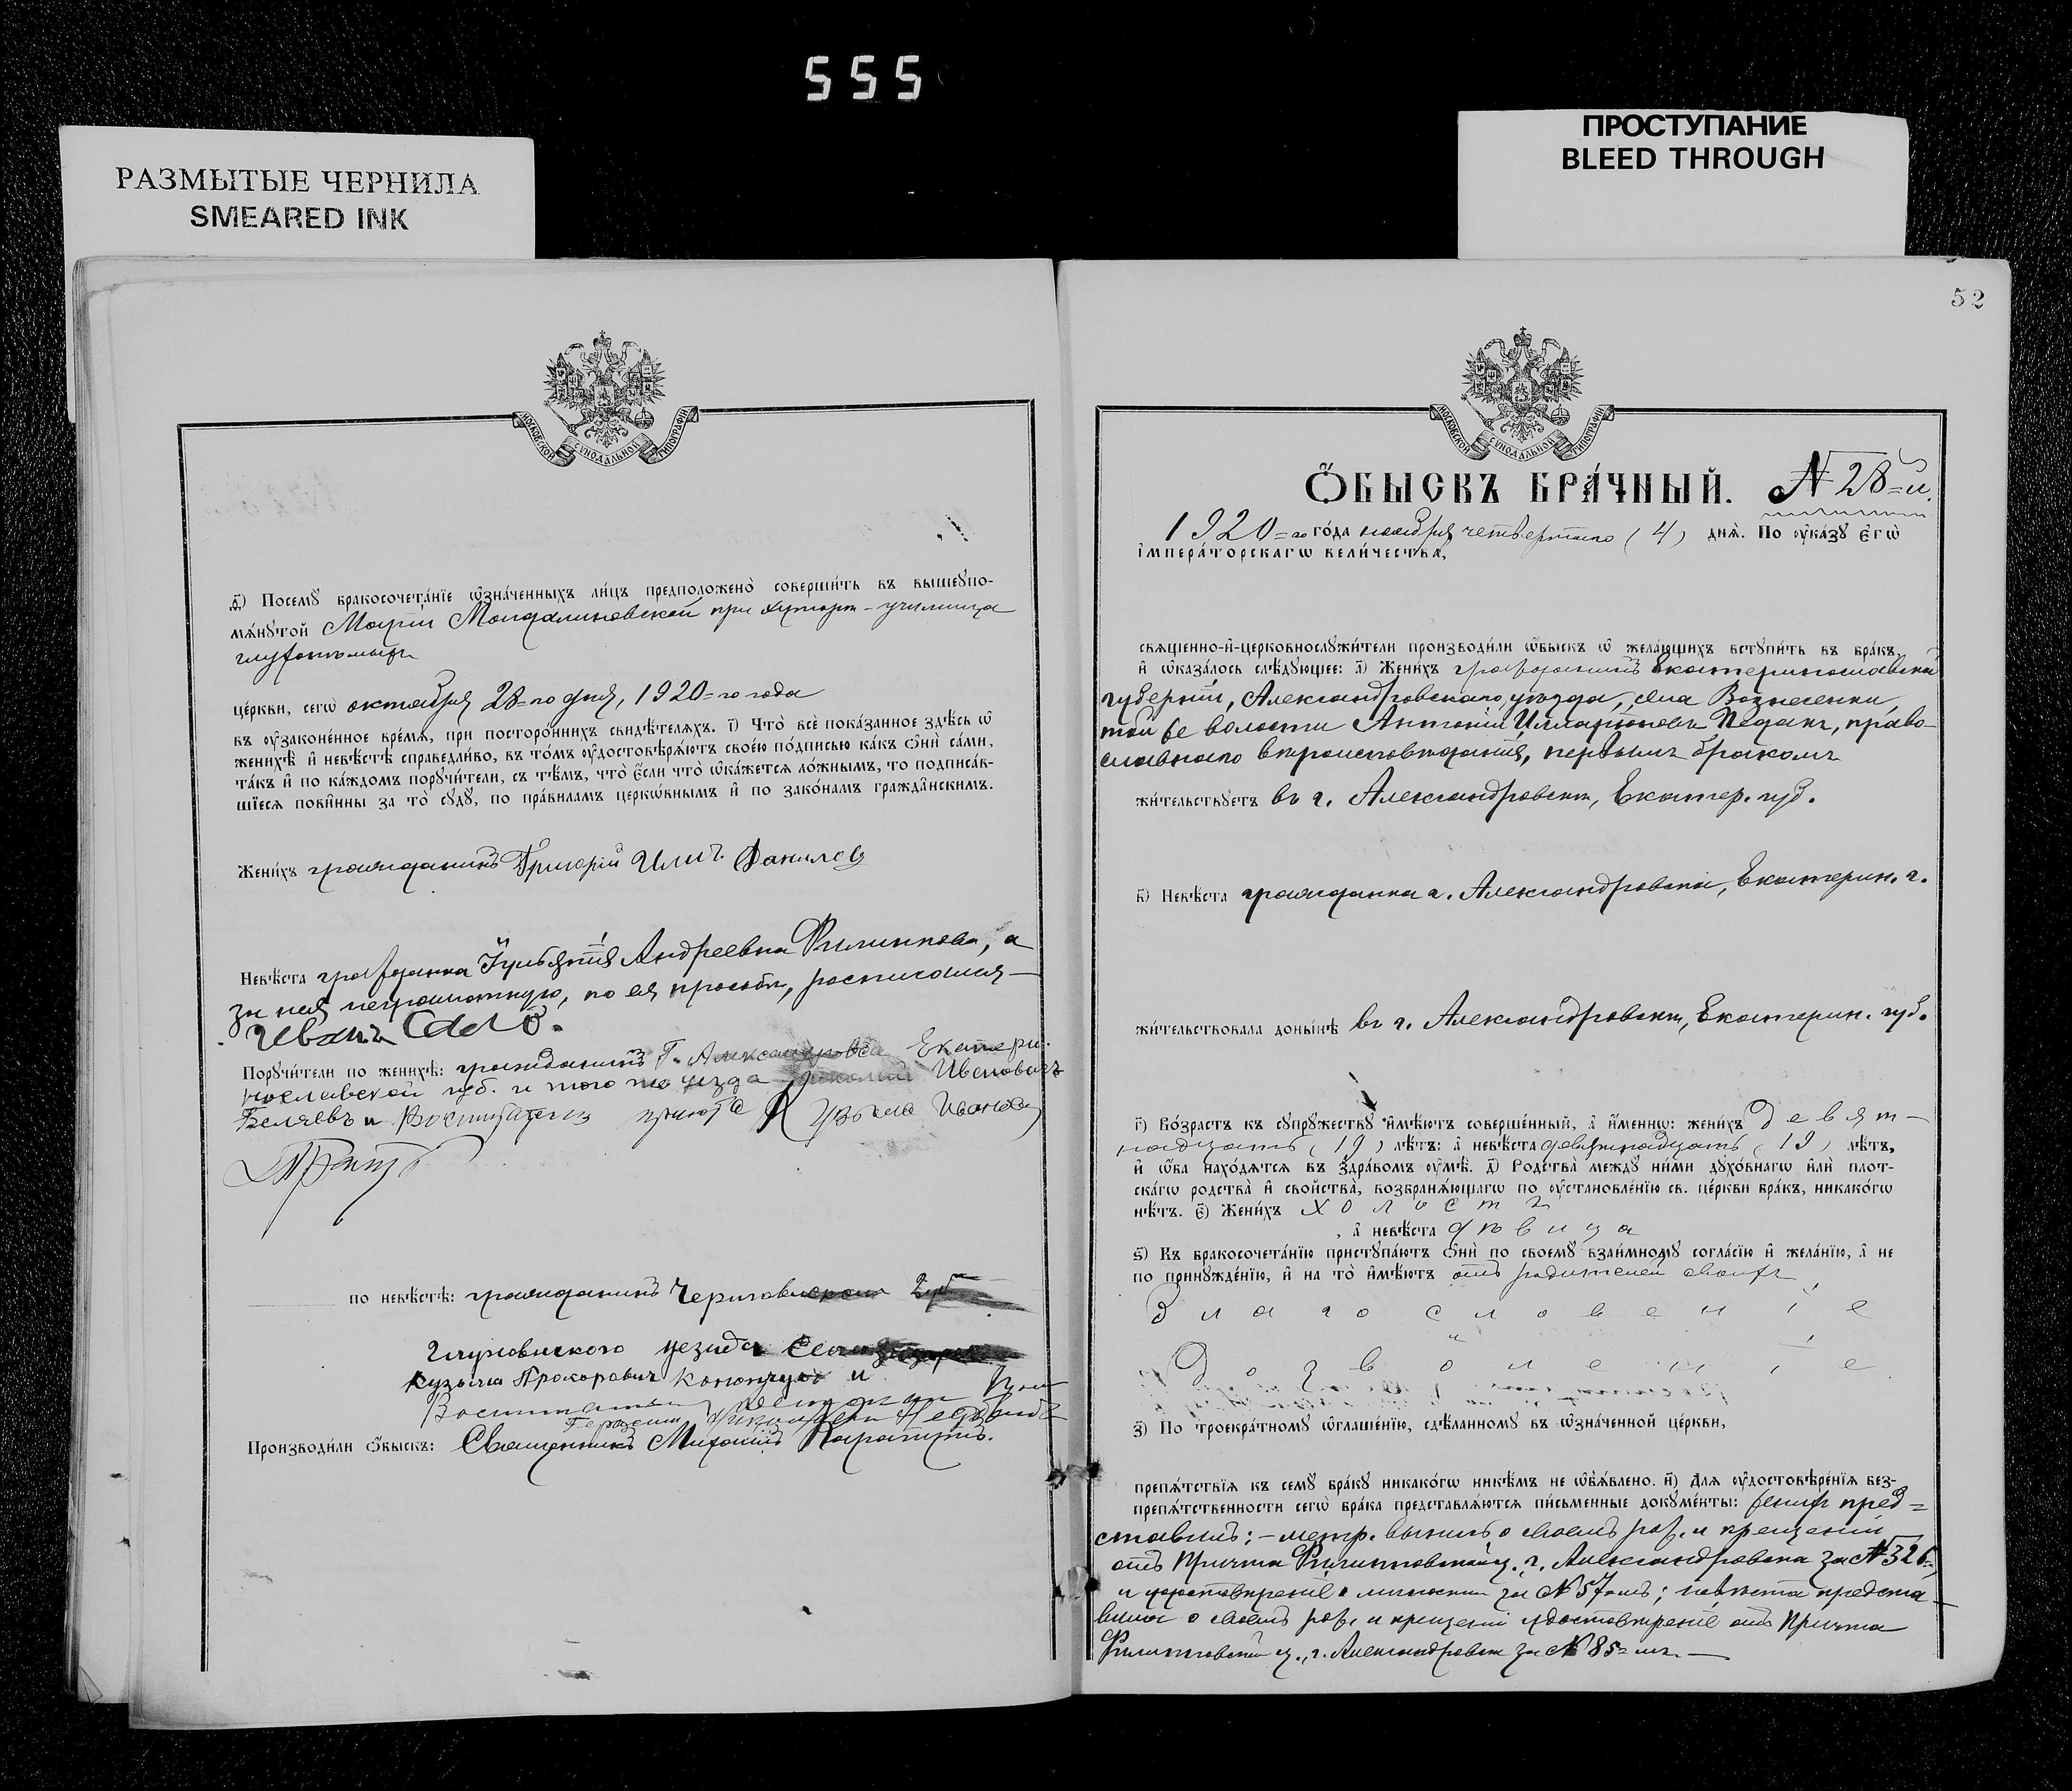 555
РАЗМЫТЫЕ ЧЕРНИЛА
SMEARED INK
ПРОСТУПАНИЕ
BLEED THROUGH
МОСКОВСКОЙ СѴНОДАЛЬНОЙ ТИПОГРАФІИ
ѳ҃) Посемꙋ̀ бракосочета́нїе ѡ҆зна́ченныхъ ли́цъ предположено̀ соверши́ть въ вышеꙋпо-
мѧ́нꙋтой Маріи Магдалиновской при хуторѣ-училища
глухонѣмыхъ
це́ркви, сегѡ̀ октября 28=го дня, 1920=го года
въ ᲂу҆зако́ненное вре́мѧ, при посторо́ннихъ свидѣ́телѧхъ. і҃) Что̀ всѐ пока́занное здѣ́сь ѡ҆
женихѣ̀ и҆ невѣ́стѣ справедли́во, въ то́мъ ᲂу҆достовѣрѧ́ютъ свое́ю по́дписью ка́къ ѻ҆нѝ са́ми,
та́къ и҆ по ка́ждомъ порꙋчи́тели, съ тѣ́мъ, что̀ є҆́сли что̀ ѡ҆ка́жетсѧ ло́жнымъ, то подписа́в-
шїесѧ пови́нны за то̀ сꙋдꙋ̀, по пра́виламъ церкѡ́внымъ и҆ по зако́намъ гражда́нскимъ.
Жени́хъ гражданинъ Григорій Ильичъ Данилов
Невѣ́ста гражданка Андреевна Филиппова, а
за нея неграмотную, по ея просьбѣ, расписался—
Иванъ Сало.
Порꙋчи́тели по женихѣ̀: гражданинъ Г. Александровска Екатери-
нославской губ. и того же уезда Ивановичъ
Беляевъ и Воспитатель приюта Ивановъ
по невѣ́стѣ: гражданинъ Черниговской губ
Глуховского уезда
Кузьма Прохорович Конопчук и
Воспитатель
Производи́ли ѻ҆́быскъ: Священникъ Михаилъ
52
МОСКОВСКОЙ СѴНОДАЛЬНОЙ ТИПОГРАФІИ
Ѻ҆́БЫСКЪ БРА́ЧНЫЙ. № 28=й.
1920=го го́да ноября четвертаго (4) днѧ̀. По ᲂу҆ка́зꙋ є҆гѡ̀
і҆мпера́торскагѡ вели́чества,
свѧще́нно-и҆-церковнослꙋжи́тели производи́ли ѻ҆́быскъ ѡ҆ жела́ющихъ вступи́ть въ бра́къ,
и҆ ѡ҆каза́лось слѣ́дꙋющее: а҃) Жени́хъ гражданинъ Екатеринославской
губерніи, Александровскаго уѣзда, села Вознесенки,
той же волости Антоній Илларіоновъ Педанъ, право-
славнаго вѣроисповѣданія, первымъ бракомъ
жи́тельствꙋетъ въ г. Александровскѣ, Екатер. губ.
в҃) Невѣ́ста гражданка г. Александровска, Екатерин. г.
жи́тельствовала доны́нѣ въ г. Александровскѣ, Екатерин. губ.
г҃) Во́зрастъ къ сꙋпрꙋ́жествꙋ и҆мѣ́ютъ соверше́нный, а҆ и҆́меннѡ: жени́хъ девят-
надцать (19) лѣ́тъ: а҆ невѣ́ста девятнадцать (19) лѣ́тъ,
и҆ ѻ҆́ба нахо́дѧтсѧ въ здра́вомъ ᲂу҆мѣ̀. д҃) Родства̀ междꙋ̀ ни́ми дꙋхо́внагѡ и҆лѝ плот-
ска́гѡ родства̀ и҆ свойства̀, возбранѧ́ющагѡ по ᲂу҆становле́нїю св. це́ркви бра́къ, никако́гѡ
нѣ́тъ. є҃) Жени́хъ холостъ
, а҆ невѣ́ста дѣвица
ѕ҃) Къ бракосочета́нїю пристꙋпа́ютъ ѻ҆нѝ по своемꙋ̀ взаи́мномꙋ согла́сїю и҆ жела́нїю, а҆ не
по принꙋжде́нїю, и҆ на то̀ и҆мѣ́ютъ отъ родителей своихъ
благословеніе
и
дозволеніе
з҃) По троекра́тномꙋ ѡ҆глаше́нїю, сдѣ́ланномꙋ въ ѡ҆зна́ченной це́ркви,
препѧ́тствїѧ къ семꙋ̀ бра́кꙋ никако́гѡ никѣ́мъ не ѡ҆б̾ѧ́влено. и҃) Длѧ ᲂу҆достовѣре́нїѧ без-
препѧ́тственности сегѡ̀ бра́ка представлѧ́ютсѧ пи́сьменные докꙋме́нты: женихъ пред=
ставилъ: – метр. выпись о своемъ рож. и крещеніи
отъ Причта Филипповской ц. г. Александровска за № 326=,
и удостовѣреніе о личности за № 57омъ; невѣста предста-
вила о своемъ рож. и крещеніи удостовѣреніе отъ Причта
Филипповской ц., г. Александровск за № 85=мъ.—